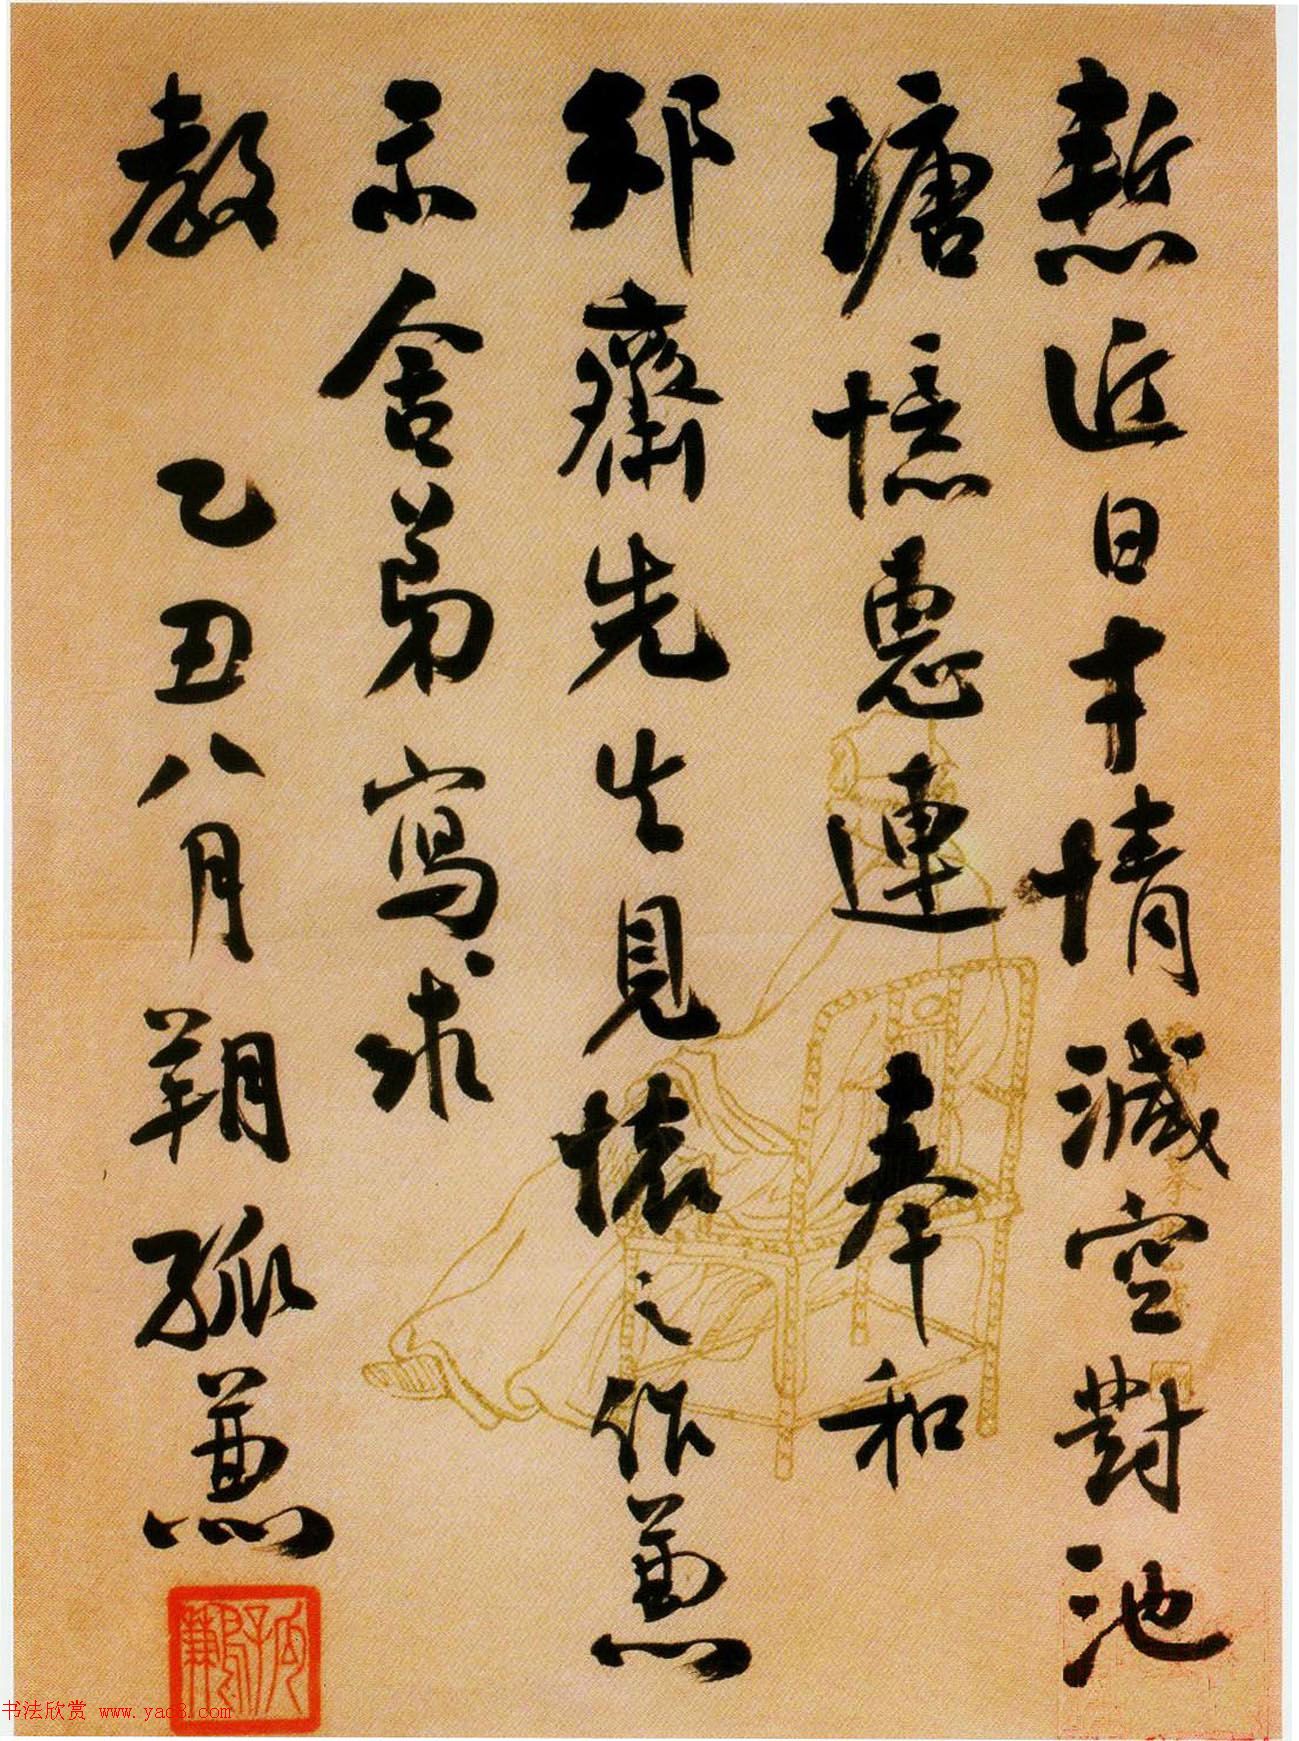 慙近日才情減空對池
塘憶惠連 奉和
齋先生見懷之作兼
示舍弟寫求
教 乙丑八月朔孤兼
孤鶼
书法欣赏 www.yac8.com